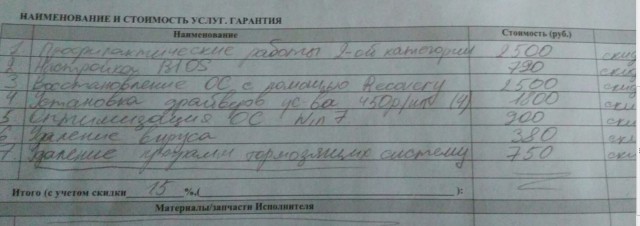 НАИМЕНОВАНИЕ И СТОИМОСТЬ УСЛУГ. ГАРАНТИЯ
Наименование Стоимость (руб.)
1. Профилактические работы 2-ой категории 2500 скид
2. Настройка BIOS 790 скид
3. Восстановление ОС с помощью Recovery 2500 скид
4. Установка драйверов ус-ва 450р/шт (4) 1800 ски
5. Оптимизация ОС Win 7 900 ски
6. Удаление вируса 380 ски
7. Удаление программ тормозящих систему 750 скид
Итого (с учетом скидки 15 %.( ):
Материалы/запчасти Исполнителя